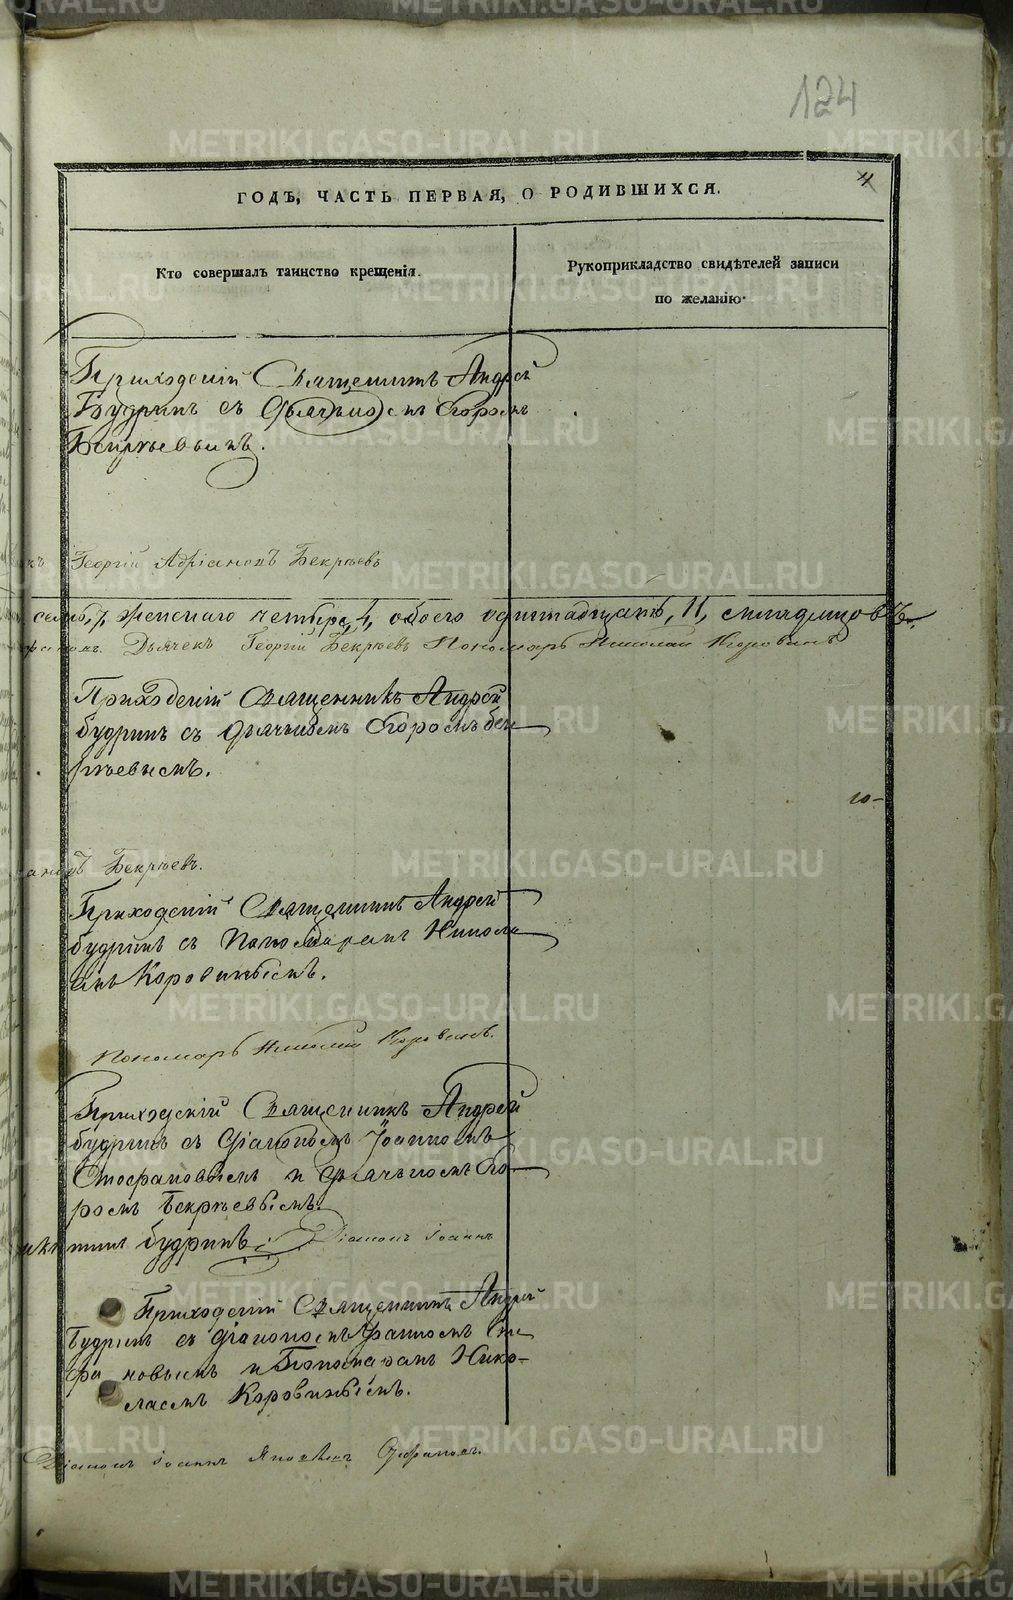 124
4
ГОДЪ, ЧАСТЬ ПЕРВАЯ, О РОДИВШИХСЯ.
Кто совершалъ таинство крещенія.
Рукоприкладство свидѣтелей записи
по желанію.
Приходскій Священникъ Андрей
Будринъ съ Дьячькомъ Егоромъ
Бекрѣевымъ.
Георгій Адріановъ Бекрѣевъ
женскаго четыре, 4, обоего одинадцать, 11, младенцовъ.
Дьячекъ Георгій Бекрѣевъ Пономарь Николай Коровинъ
Приходскій Священникъ Андрей
будринъ съ дьячькомъ Егоромъ бек
рѣевымъ.
10-
Бекрѣевъ.
Приходскій Священникъ Андрей
будринъ съ Пономаремъ Никола
емъ Коровинымъ.
Пономарь Николай Коровинъ.
Приходскій Священникъ Андрей
будринъ съ діакономъ Іоанномъ
Стефановымъ и дьячькомъ Его
ромъ Бекрѣевымъ.
будринъ Діаконъ Іоаннъ
Приходскій Священникъ Андрей
Будринъ съ діакономъ Іоанномъ Сте
фановымъ и Пономаремъ Нико-
лаемъ Коровинымъ.
Діаконъ Іоаннъ Стефановъ.
METRIKI.GASO-URAL.RU